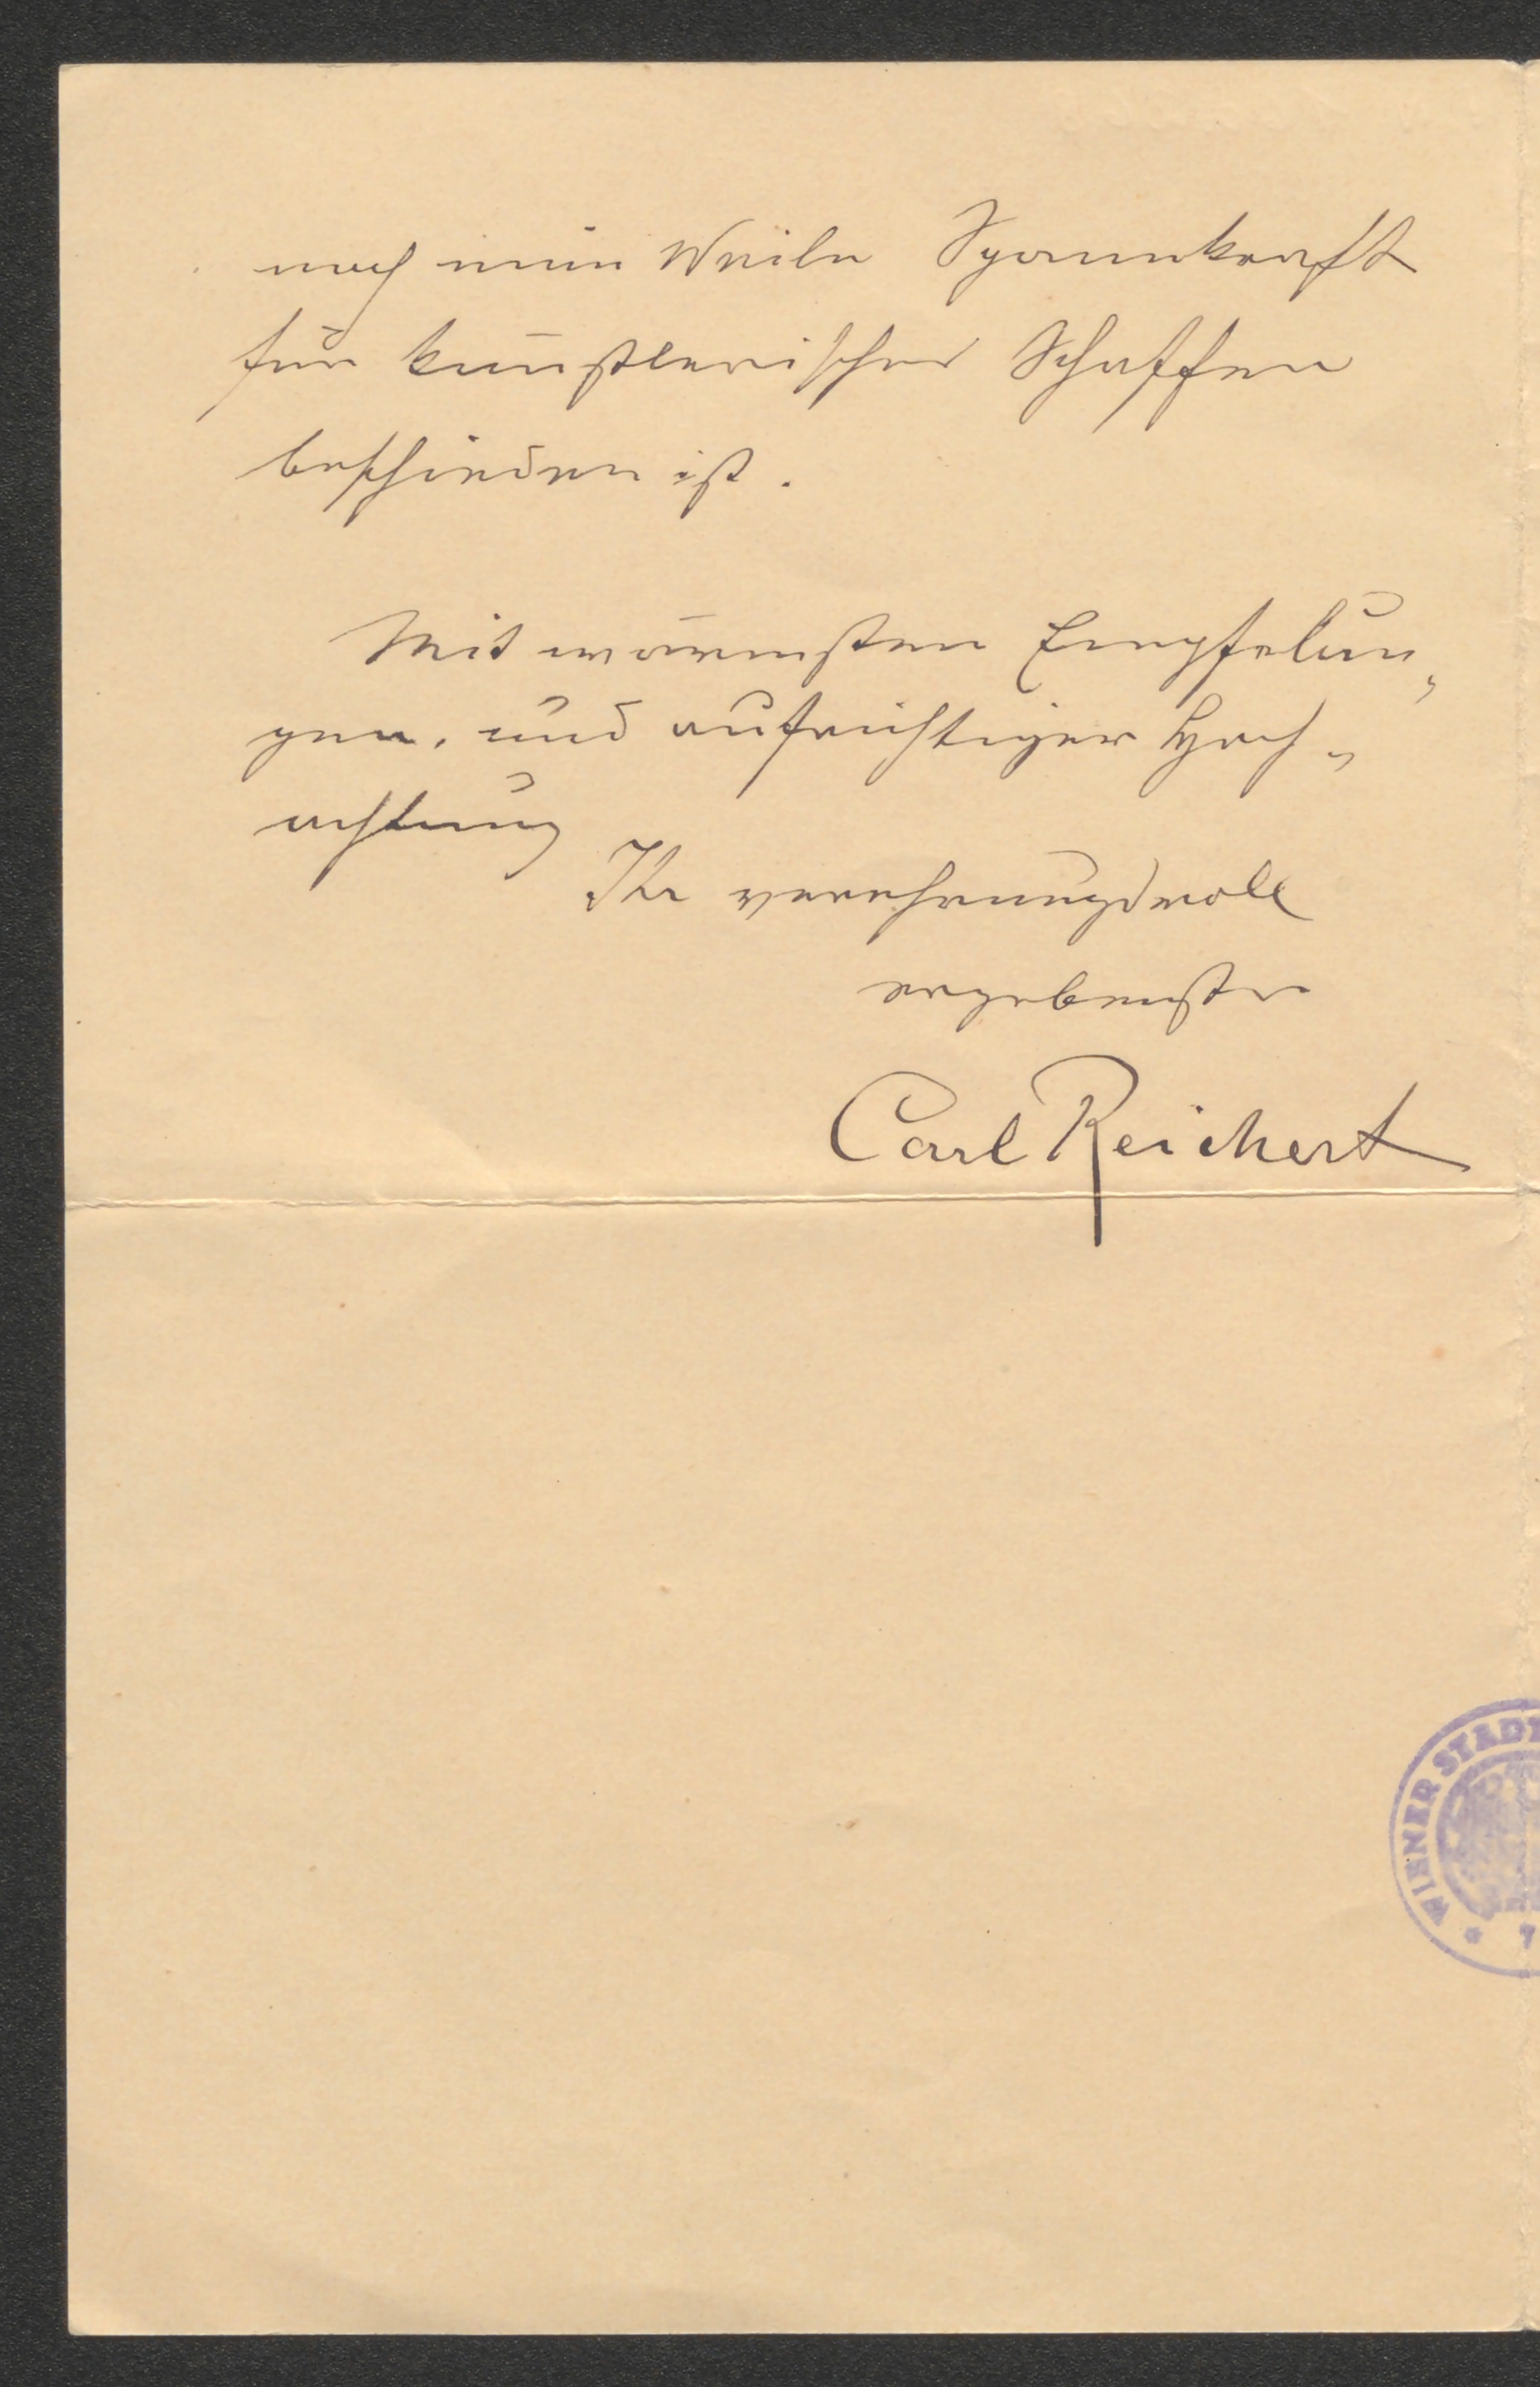 noch eine Weile Spannkraft
für künstlerisches Schaffen
beschieden ist.
Mit wärmsten Empfelun„
gen, und aufrichtiger Hoch„
achtung
Ihr verehrungsvoll
ergebenster
Carl Reichert
WIENER STADT
* 7